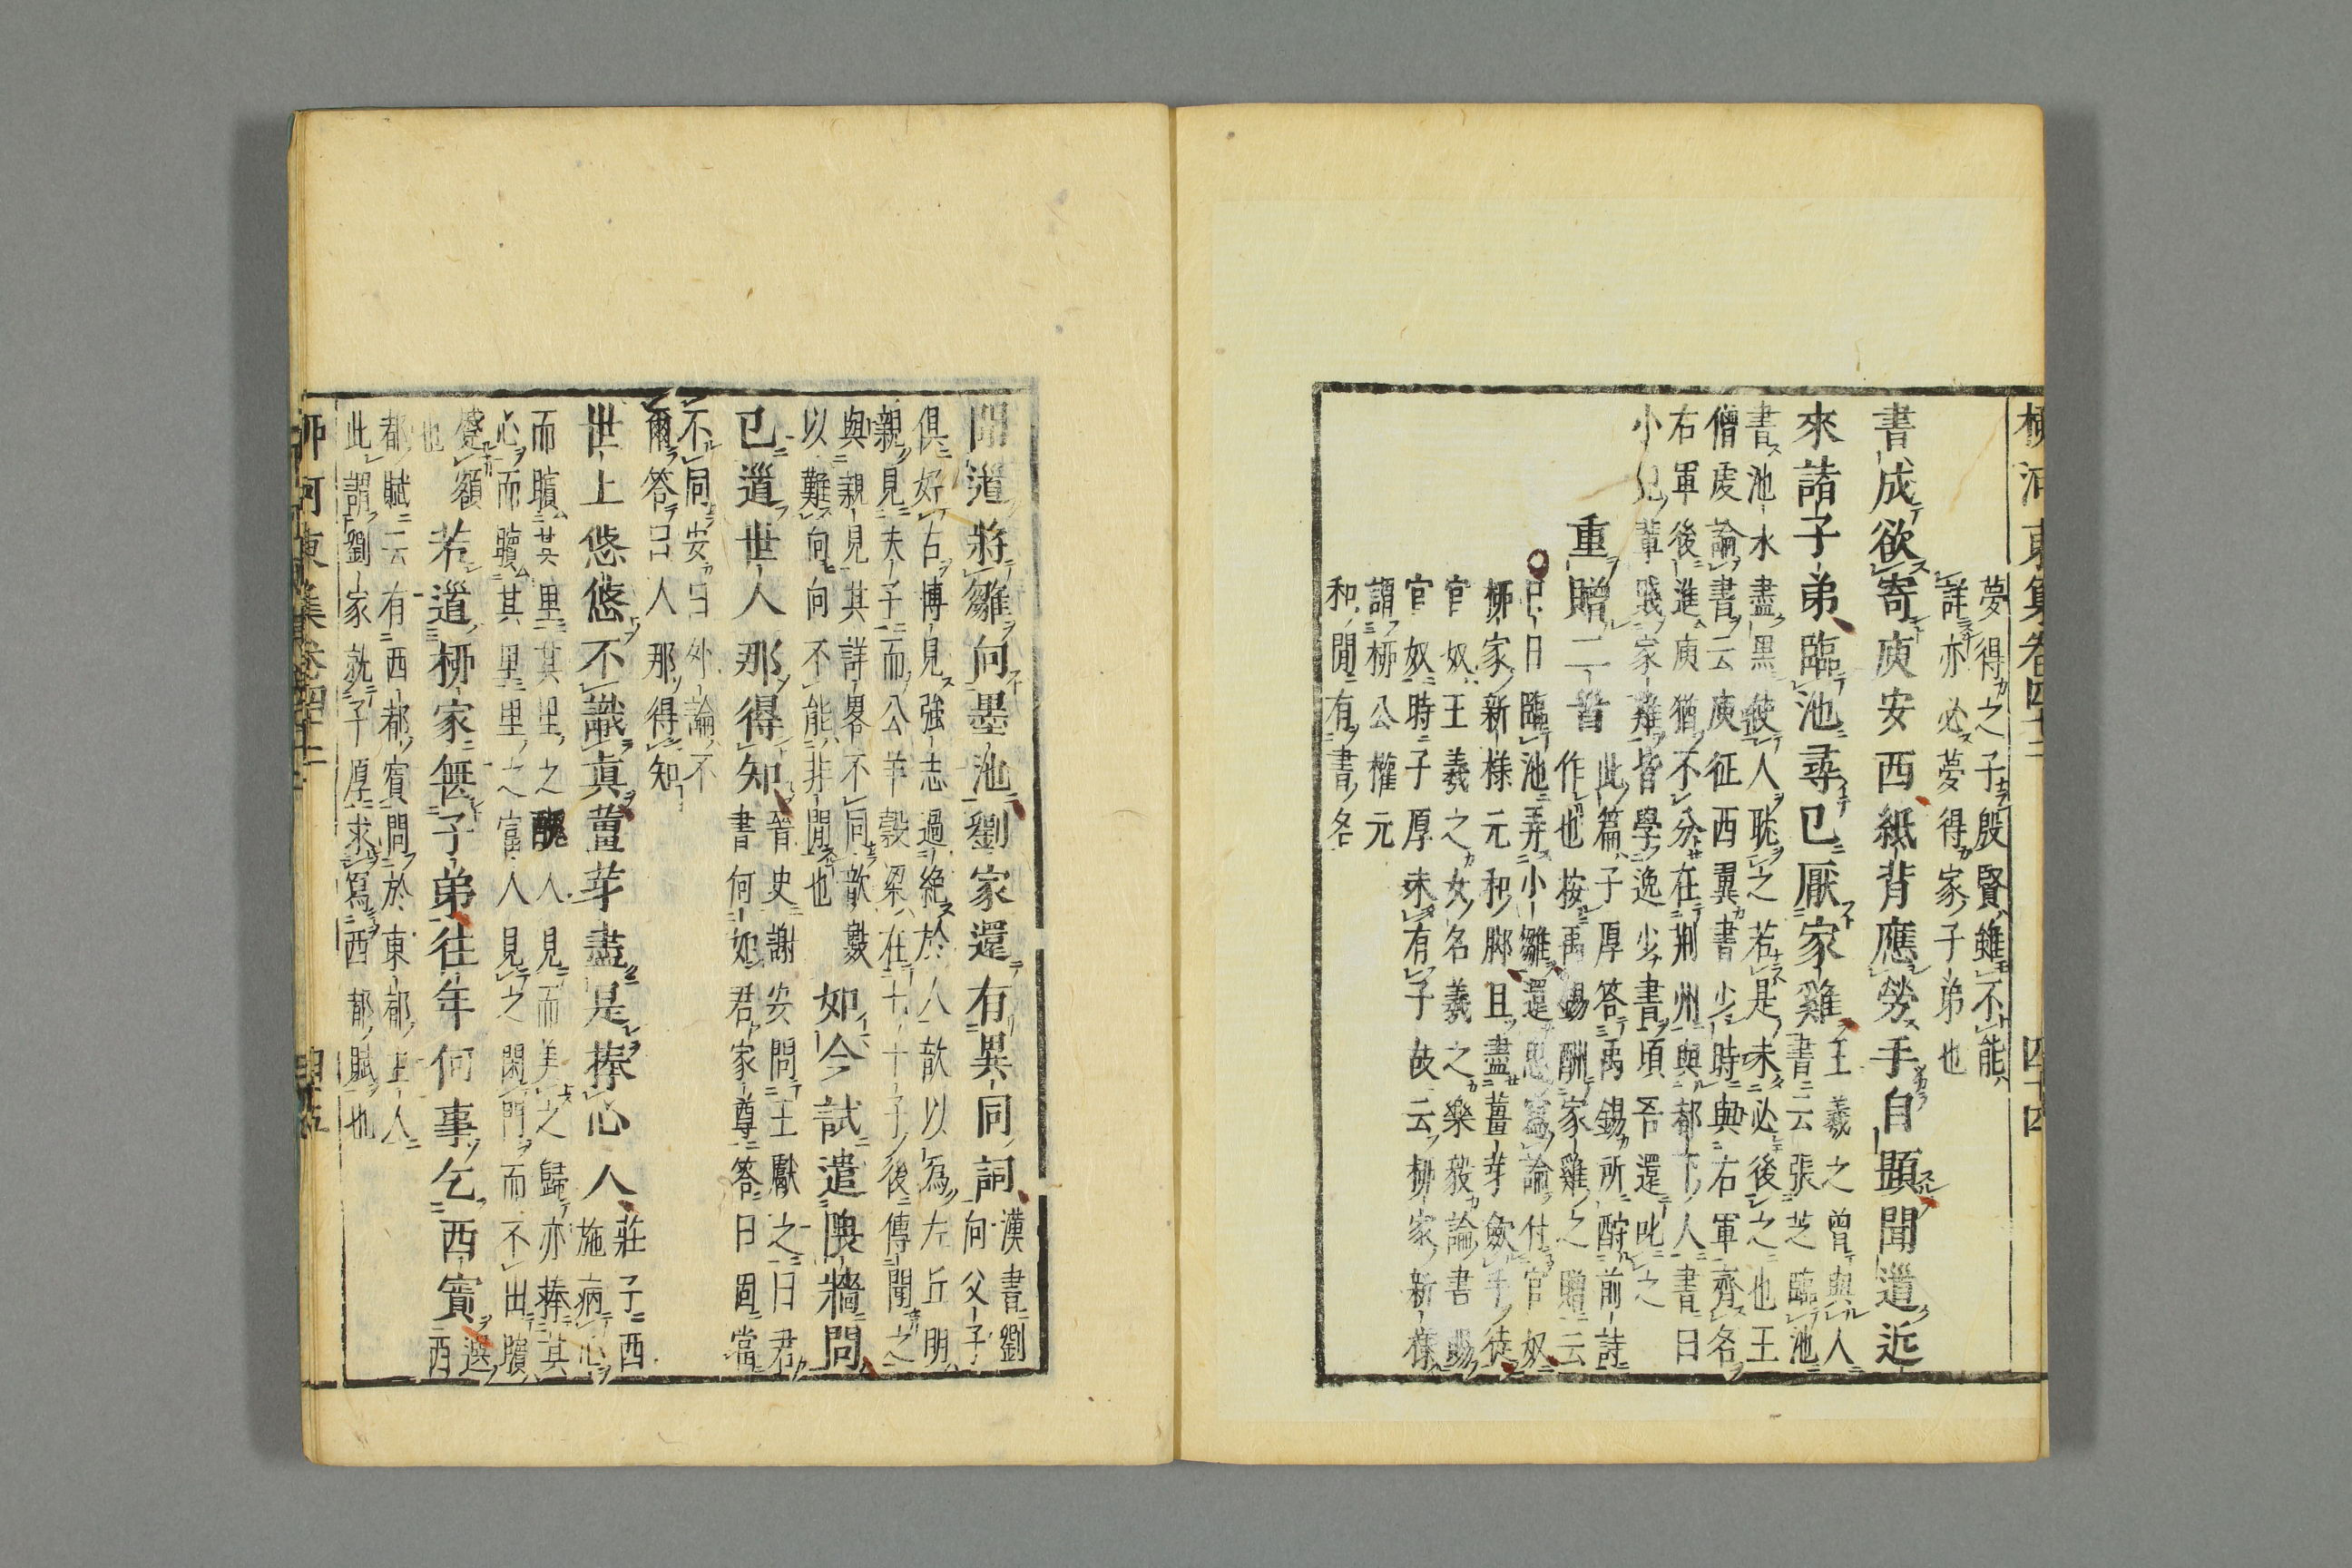 柳河東集卷四十二 四十四
夢得之子殷賢雖不能
詳亦必夢得家子弟也
書成欲寄庾安西紙背應勞手自題聞道近
來諸子弟臨池尋已厭家雞王羲之曾與人
書云張芝臨池
書池水盡黑使人耽之若是未必後之也王
僧虔論書云庾征西翼書少時與右軍齊名
右軍後進庾猶不分在荆州與都下人書曰
小兒輩賤家雞皆學逸少書頃吾還叱之
此篇子厚答禹錫所酧前詩
重贈二首
作也按禹錫酬家雞之贈云
日日臨池弄小雛還思寫論付官奴
柳家新樣元和脚且盡薑芽斂手徒
官奴王羲之女名羲之樂毅論書賜
官奴時子厚未有子故云柳家新樣
謂柳公權元
和聞有書名
聞道將雛向墨池劉家還有異同詞
漢書劉
向父子
俱好古博見強志過絶於人歆以為左丘明
親見夫子而公羊穀梁在七十子後傳聞之
與親見其詳畧不同歆數
以難向向不能非間也
如今試遣隈牆問
已道世人那得知
晉史謝安問王獻之曰君
書何如君家尊答曰固當
不同安曰外論不
爾答曰人那得知
世上悠悠不識真薑芽盡是捧心人
莊子西
施病心
而矉其里其里之醜人見而美之歸亦捧其
心而矉其里里之富人見之閉門而不出矉
蹙額
也
若道柳家無子弟往年何事乞西賓
選
西
都賦云有西都賓問於東都主人
此謂劉家就子厚求寫西都賦也
柳河東集卷四十二 四十五